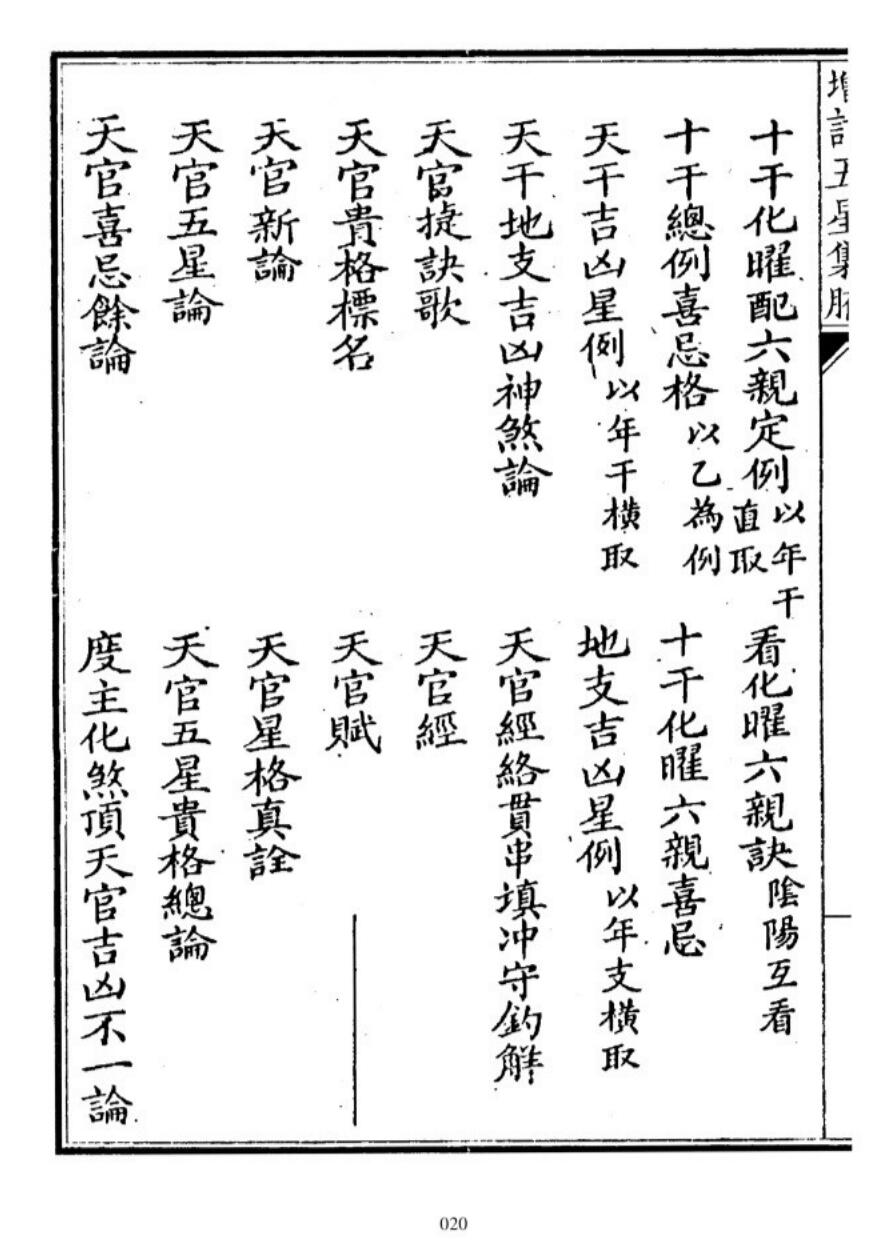 增訂五星集腋
十干化曜配六親定例 以年干直取
看化曜六親訣 陰陽互看
十干總例喜忌格 以乙為例
十干化曜六親喜忌
天干吉凶星例 以年干橫取
地支吉凶星例 以年支橫取
天干地支吉凶神煞論
天官經絡貫串填冲守釣解
天官捷訣歌
天官經
天官貴格標名
天官賦
天官新論
天官星格真詮
天官五星論
天官五星貴格總論
天官喜忌餘論
度主化煞頂天官吉凶不一論
020